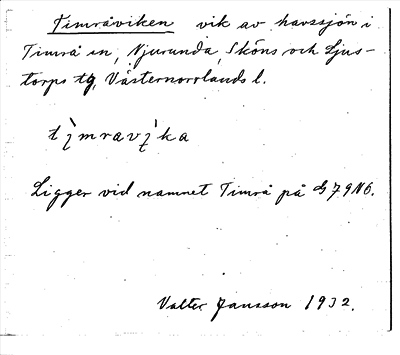 Timråviken vik av havssjön i
Timrå sn, Njurunda, Sköns och Ljus-
torps tg, Västernorrlands l.
Ligger vid namnet Timrå på G79N6.
Valter Jansson 1932.